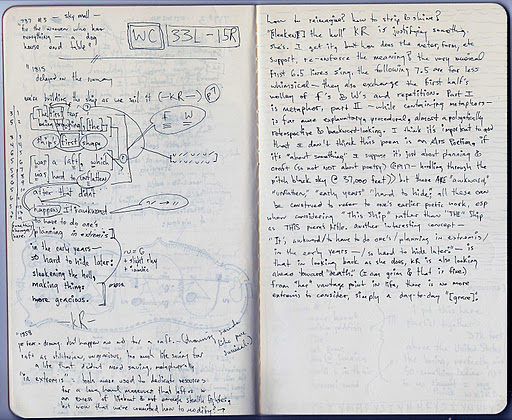 sky mall —
to the women who has
everything — a dog
house and table"
WC 33L-15R
"1815
delayed on the runway
we're building the ship as we sail it (—KR—)
The first fear
being drowning, the
ship's first shape
was a raft, which
was hard to unflatten
after that didn't
happen. It's awkward
to have to do one's
planning in extremis
in the early years —
so hard to hide later:
sleekening the hull,
making things
more gracious.
F W
KR—
"1858
raft as utilitarian, ungracious, too much life saving for
a life that didn't need saving, metaphorically
in extremis: tools more used to dedicate resources
for a long hard maneuver that allows us
an excess of
but now that we've committed how to modify? →
how to reimagine? how to strip & shine?
"Sleeken[] the hull" KR is justifying something,
she's. I get it, but how does the meter, form, etc
support, re-enforce the meaning? the very musical
first 6.5 lines sing, the following 7.5 are far less
whimsical — they also exchange the first half's
volley of f's & w's had repetition. Part I
is metaphor, part II — while containing metaphors —
is far more explanatory, procedural, almost apologetically
retrospective & backward-looking. I think it's important to add
that I don't think this poem is an Ars Poetica, if
it's "about something" I suppose it's just about planning &
craft (so not not about poetry (@1857 — hurtling through the
pitch black sky @ 37,000 feet)) but there ARE "awkward,"
"unflatten," "early years" "hard to hide;" all these can
be construed to refer to one's earlier poetic work, esp
when considering "This Ship" rather than "THE" Ship
as THIS poem's title. another interesting concept —
"It's awkward/to have to do one's/planning in extremis/
in the early years — /so hard to hide later:" — is
that in looking back as she does, KR is also looking
ahead toward "death" (I am grim & that is fine)
from "her" vantage point in life, there is no more
extremis to consider, simply a day-to-day "[grace].